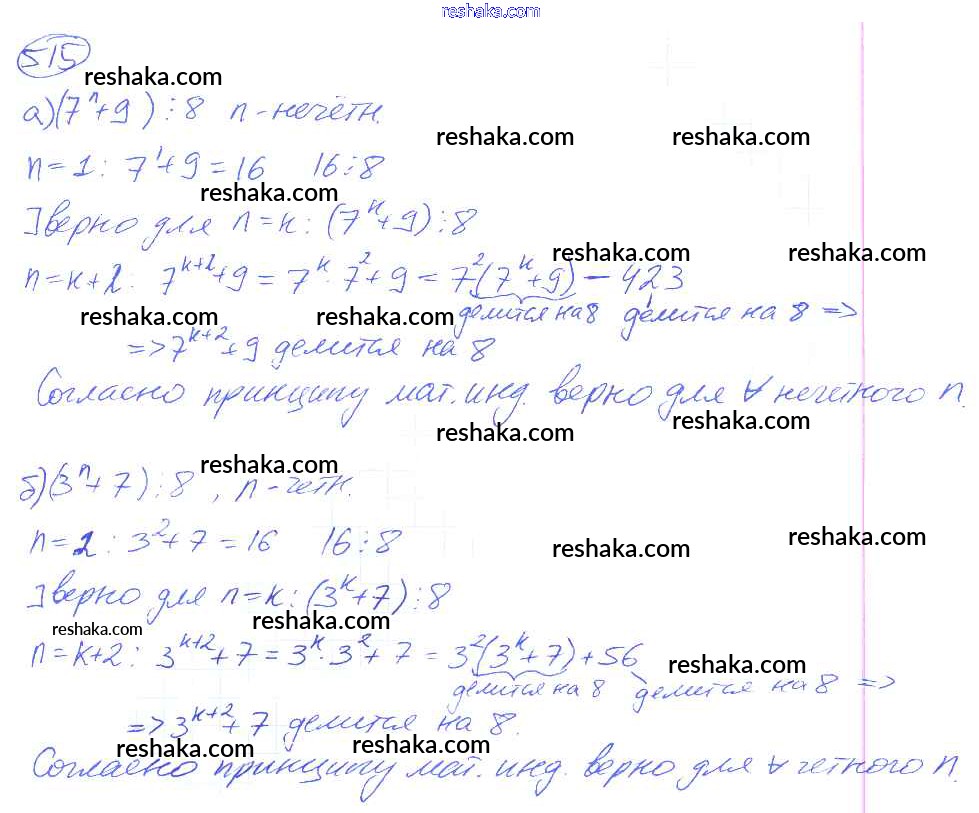 reshaka.com
515
reshaka.com
а) (7ⁿ+9) ⋮ 8 n - нечётн.
reshaka.com reshaka.com
n=1: 7¹+9=16 16⋮8
reshaka.com
] верно для n=k: (7ᵏ+9)⋮8
reshaka.com reshaka.com
n=k+2: 7ᵏ⁺²+9 = 7ᵏ·7²+9 = 7²(7ᵏ+9) - 423
делится на 8 делится на 8 =>
reshaka.com reshaka.com
=> 7ᵏ⁺²+9 делится на 8
Согласно принципу мат. инд. верно для ∀ нечетного n.
reshaka.com reshaka.com
reshaka.com
б) (3ⁿ+7)⋮8, n - четн.
n=2: 3²+7=16 16⋮8
reshaka.com reshaka.com
] верно для n=k: (3ᵏ+7)⋮8
reshaka.com reshaka.com
n=k+2: 3ᵏ⁺²+7 = 3ᵏ·3²+7 = 3²(3ᵏ+7)+56
reshaka.com
делится на 8 делится на 8 =>
=> 3ᵏ⁺²+7 делится на 8.
reshaka.com reshaka.com
Согласно принципу мат. инд. верно для ∀ четного n.